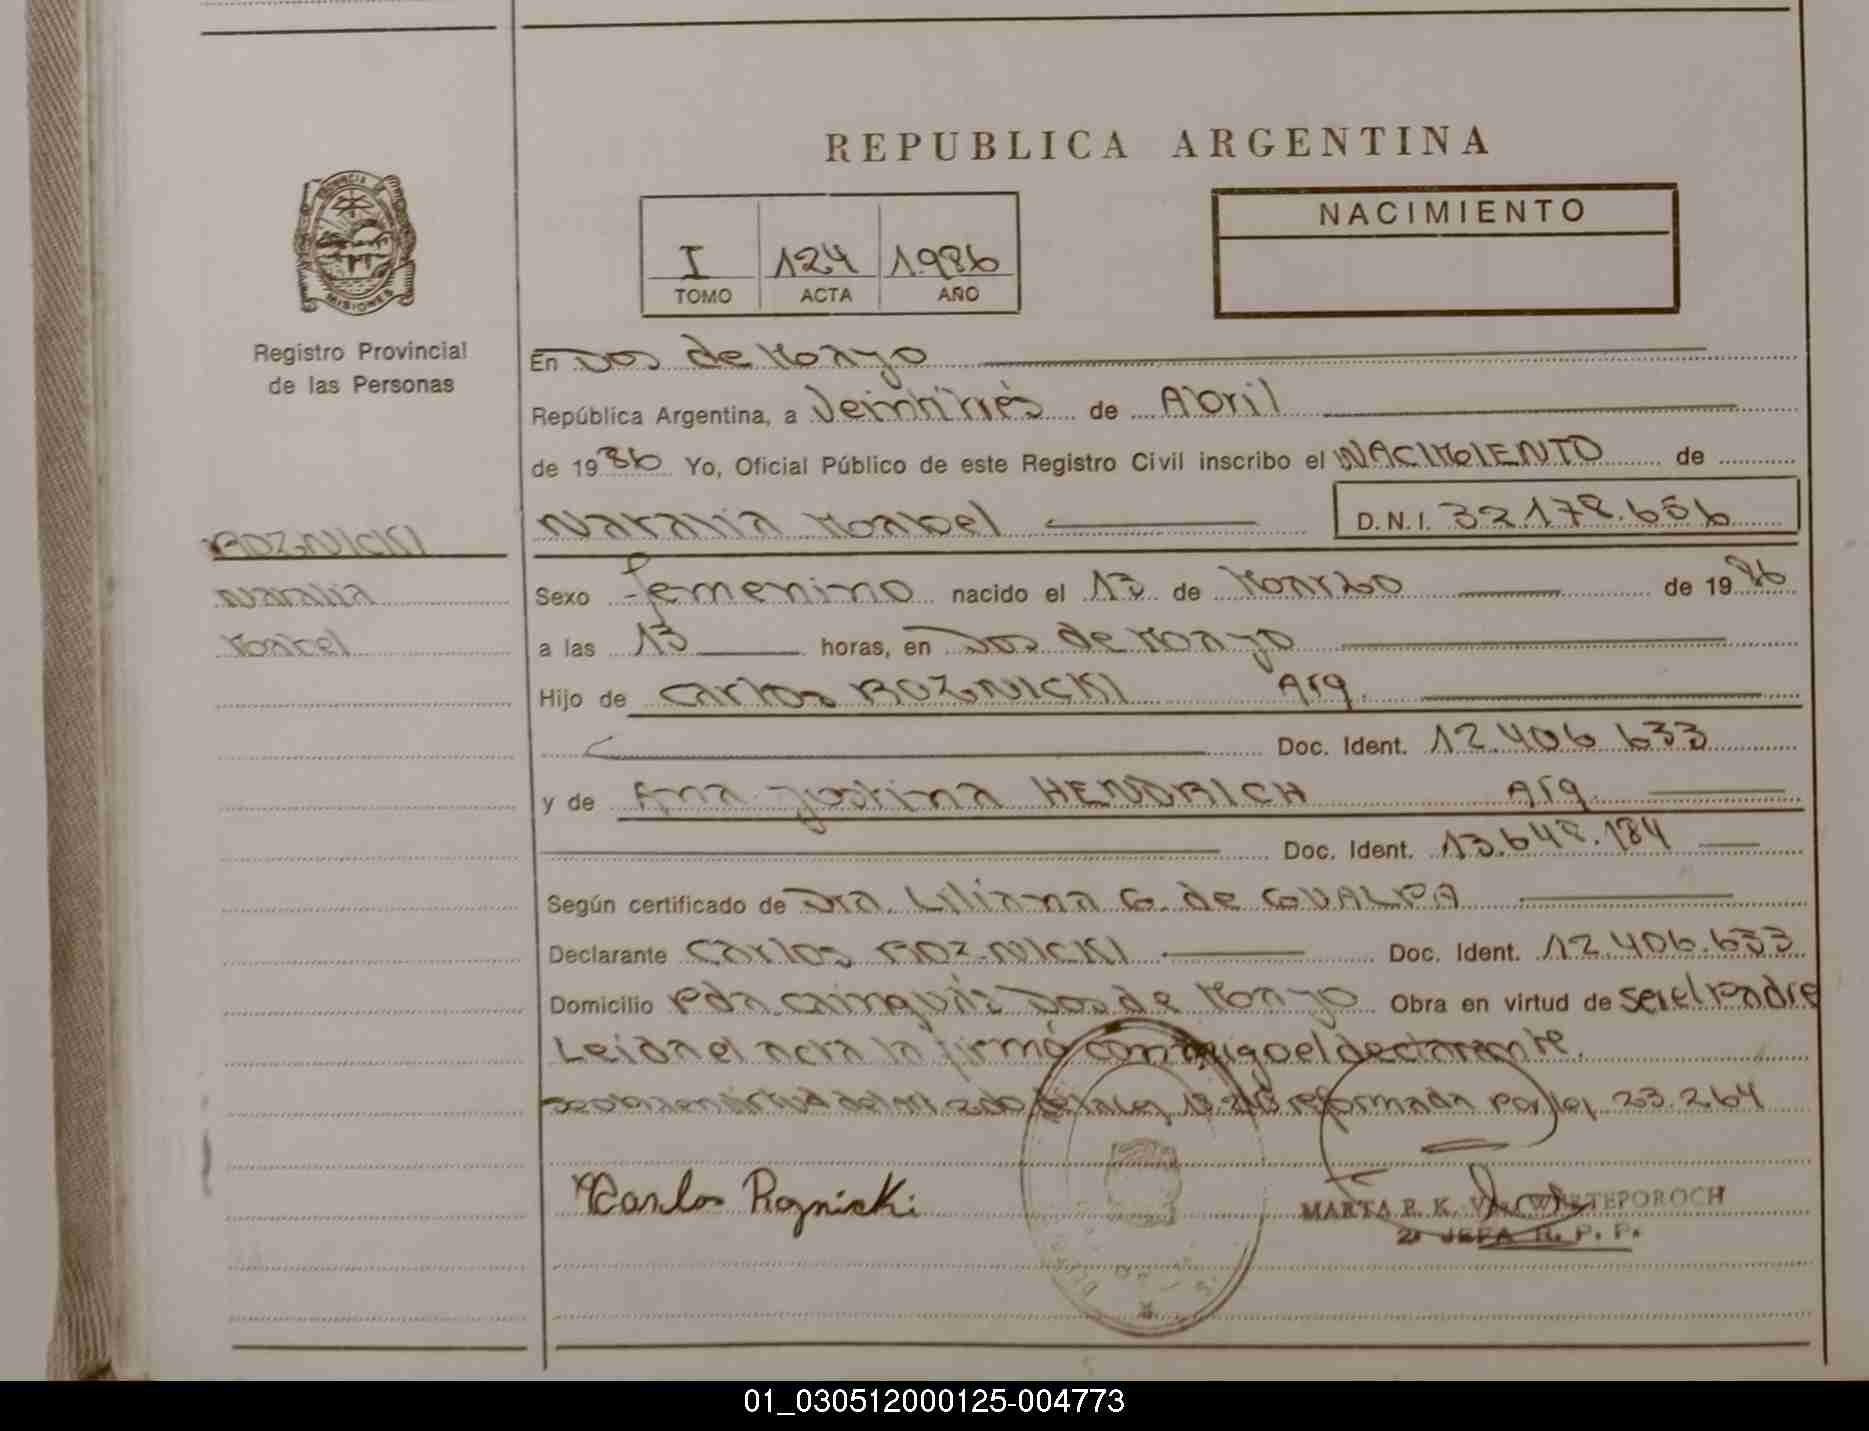 REPUBLICA ARGENTINA
PROVINCIA
MISIONES
Registro Provincial
de las Personas
I 124 1986
TOMO ACTA AÑO
NACIMIENTO
En Dos de Mayo
República Argentina, a Veintitrés de Abril
de 1986 Yo, Oficial Público de este Registro Civil inscribo el NACIMIENTO de
Natalia Maribel D.N.I. 32.178.656
ROZNICKI
Natalia
Maribel
Sexo femenino nacido el 13 de Marzo de 1986
a las 13 horas, en Dos de Mayo
Hijo de Carlos ROZNICKI Arg.
Doc. Ident. 12.406.633
y de Ana Justina HENDRICH Arg.
Doc. Ident. 13.648.184
Según certificado de Dra. Liliana G. de GUALPA
Declarante Carlos ROZNICKI Doc. Ident. 12.406.633
Domicilio Pdn. Cainguás Dos de Mayo Obra en virtud de ser el Padre
Leida el acta la firmó conmigo el declarante.
reformada por ley 23.264
Carlos Roznicki
MARTA E. K.
2º JEFA R. P. P.
01_030512000125-004773